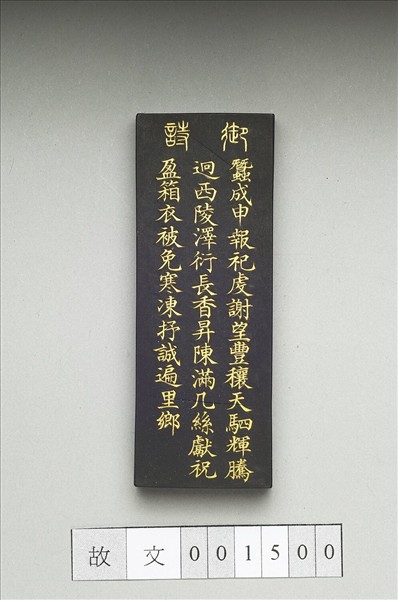 御
蠶成申報祀虔謝望豐穰天駟輝騰
詩
迥西陵澤衍長香昇陳滿几絲獻祝
盈箱衣被免寒凍抒誠遍里鄉
故文001500